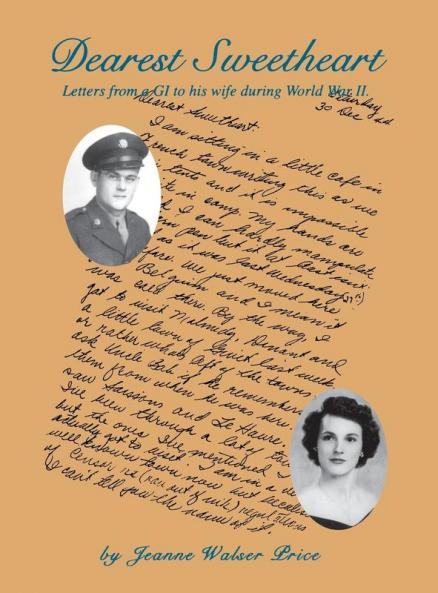 Dearest Sweetheart
Letters from a GI to his wife during World War II.
Saturday
30 Dec
Dearest Sweetheart:
I am sitting in a little cafe in
French town writing this as we
tents and it is impossible
in camp. My hands are
I can hardly manipulate
pen but it at least
as it was last Wednesday
We just moved here
Belgium and I mean it
was cold there. By the way, I
got to visit Malmedy, Dinant and
a little town of last week
or rather whats left of the towns
ask Uncle Bob if he remembers
them from when he was here.
saw Soissons and Le Havre.
I've been through a lot of
but the ones I've mentioned I
actually got to visit. I am in a
well known town now but
of censor
I can't tell you the name of it.
by Jeanne Walser Price